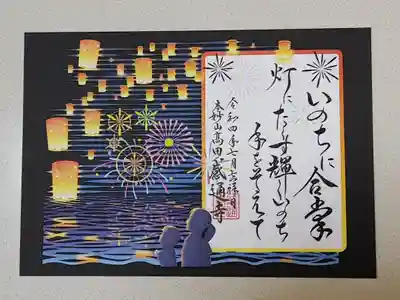 いのちに合掌
灯に輝くいのち
手をそえて
令和四年七月吉祥日
本妙山高田感通寺